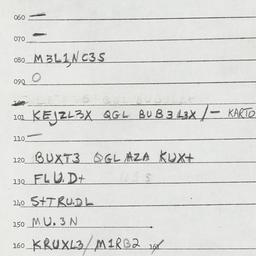 060 —
070 —
080 M3L1,NC35
090 O
101 KEJZL3X QGL BUB3L3X / — KARTO
110 —
120 BUXT3 QGL AZA KUX+
130 FLU.D+
140 S+TRUDL
150 MU.3N
160 KRUXL3/ M1RB2